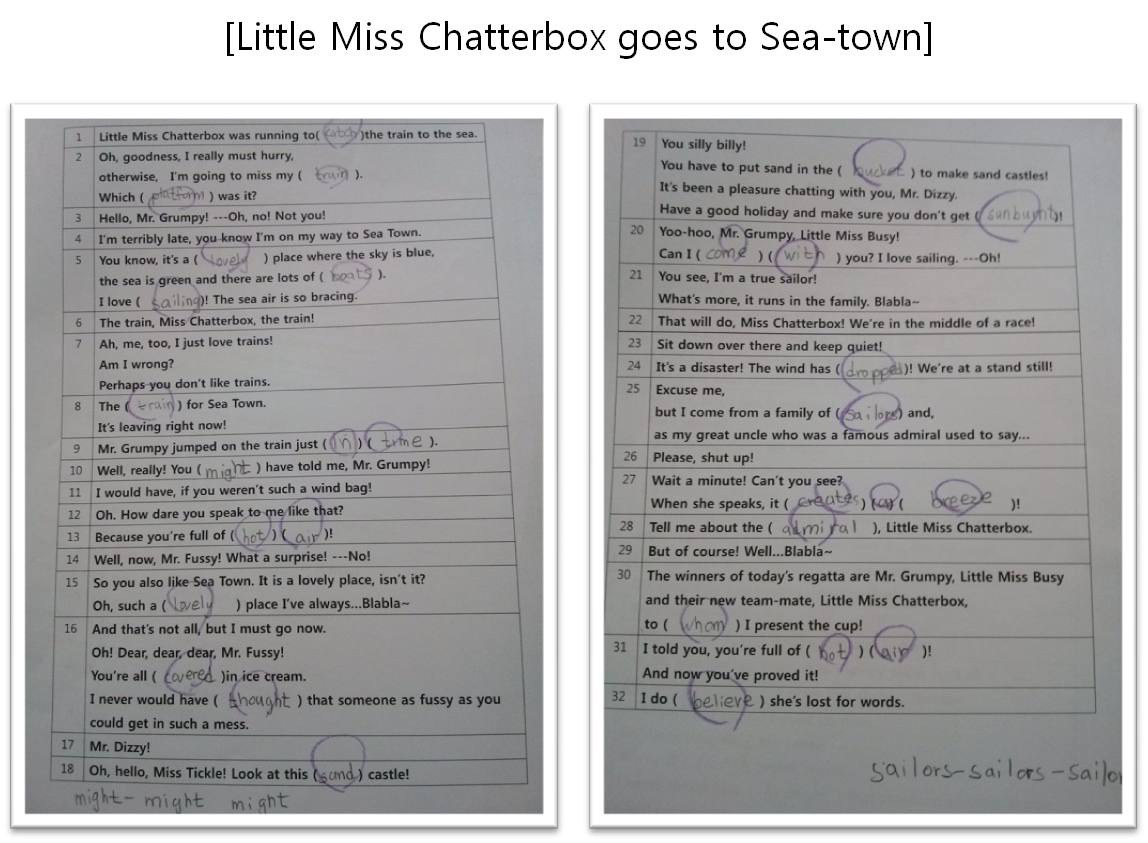 [Little Miss Chatterbox goes to Sea-town]
1 Little Miss Chatterbox was running to( catch )the train to the sea.
2 Oh, goodness, I really must hurry,
otherwise, I'm going to miss my ( train ).
Which ( platform ) was it?
3 Hello, Mr. Grumpy! ---Oh, no! Not you!
4 I'm terribly late, you know I'm on my way to Sea Town.
5 You know, it's a ( lovely ) place where the sky is blue,
the sea is green and there are lots of ( boats ).
I love ( sailing )! The sea air is so bracing.
6 The train, Miss Chatterbox, the train!
7 Ah, me, too, I just love trains!
Am I wrong?
Perhaps you don't like trains.
8 The ( train ) for Sea Town.
It's leaving right now!
9 Mr. Grumpy jumped on the train just ( in ) ( time ).
10 Well, really! You ( might ) have told me, Mr. Grumpy!
11 I would have, if you weren't such a wind bag!
12 Oh. How dare you speak to me like that?
13 Because you're full of ( hot ) ( air )!
14 Well, now, Mr. Fussy! What a surprise! ---No!
15 So you also like Sea Town. It is a lovely place, isn't it?
Oh, such a ( lovely ) place I've always...Blabla~
16 And that's not all, but I must go now.
Oh! Dear, dear, dear, Mr. Fussy!
You're all ( covered )in ice cream.
I never would have ( thought ) that someone as fussy as you
could get in such a mess.
17 Mr. Dizzy!
18 Oh, hello, Miss Tickle! Look at this ( sand ) castle!
might- might might
19 You silly billy!
You have to put sand in the ( bucket ) to make sand castles!
It's been a pleasure chatting with you, Mr. Dizzy.
Have a good holiday and make sure you don't get ( sunburnt )!
20 Yoo-hoo, Mr. Grumpy, Little Miss Busy!
Can I ( come ) ( with ) you? I love sailing. ---Oh!
21 You see, I'm a true sailor!
What's more, it runs in the family. Blabla~
22 That will do, Miss Chatterbox! We're in the middle of a race!
23 Sit down over there and keep quiet!
24 It's a disaster! The wind has ( dropped )! We're at a stand still!
25 Excuse me,
but I come from a family of ( sailors ) and,
as my great uncle who was a famous admiral used to say...
26 Please, shut up!
27 Wait a minute! Can't you see?
When she speaks, it ( creates ) ( a ) ( breeze )!
28 Tell me about the ( admiral ), Little Miss Chatterbox.
29 But of course! Well...Blabla~
30 The winners of today's regatta are Mr. Grumpy, Little Miss Busy
and their new team-mate, Little Miss Chatterbox,
to ( whom ) I present the cup!
31 I told you, you're full of ( hot ) ( air )!
And now you've proved it!
32 I do ( believe ) she's lost for words.
sailors-sailors-sailo